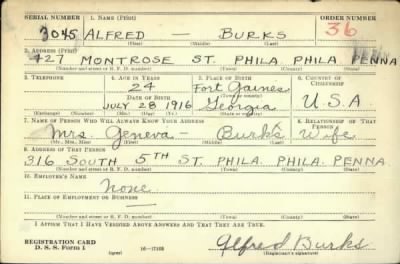 SERIAL NUMBER 1. NAME (Print) ORDER NUMBER
3045 ALFRED — BURKS 36
(First) (Middle) (Last)
2. ADDRESS (Print)
427 MONTROSE ST. PHILA. PHILA PENNA
(Number and street or R. F. D. number) (Town) (County) (State)
3. TELEPHONE 4. AGE IN YEARS 5. PLACE OF BIRTH 6. COUNTRY OF CITIZENSHIP
24 Fort Gaines
DATE OF BIRTH (Town or county)
JULY 28 1916 Georgia U.S.A
(Exchange) (Number) (Mo.) (Day) (Yr.) (State or country)
7. NAME OF PERSON WHO WILL ALWAYS KNOW YOUR ADDRESS 8. RELATIONSHIP OF THAT PERSON
Mrs. Geneva — Burks Wife
(Mr., Mrs., Miss) (First) (Middle) (Last)
9. ADDRESS OF THAT PERSON
316 SOUTH 5TH ST. PHILA. PHILA. PENNA.
(Number and street or R. F. D. number) (Town) (County) (State)
10. EMPLOYER'S NAME
None
11. PLACE OF EMPLOYMENT OR BUSINESS
(Number and street or R. F. D. number) (Town) (County) (State)
I AFFIRM THAT I HAVE VERIFIED ABOVE ANSWERS AND THAT THEY ARE TRUE.
REGISTRATION CARD
D. S. S. Form 1 (over) Alfred Burks
(Registrant's signature)